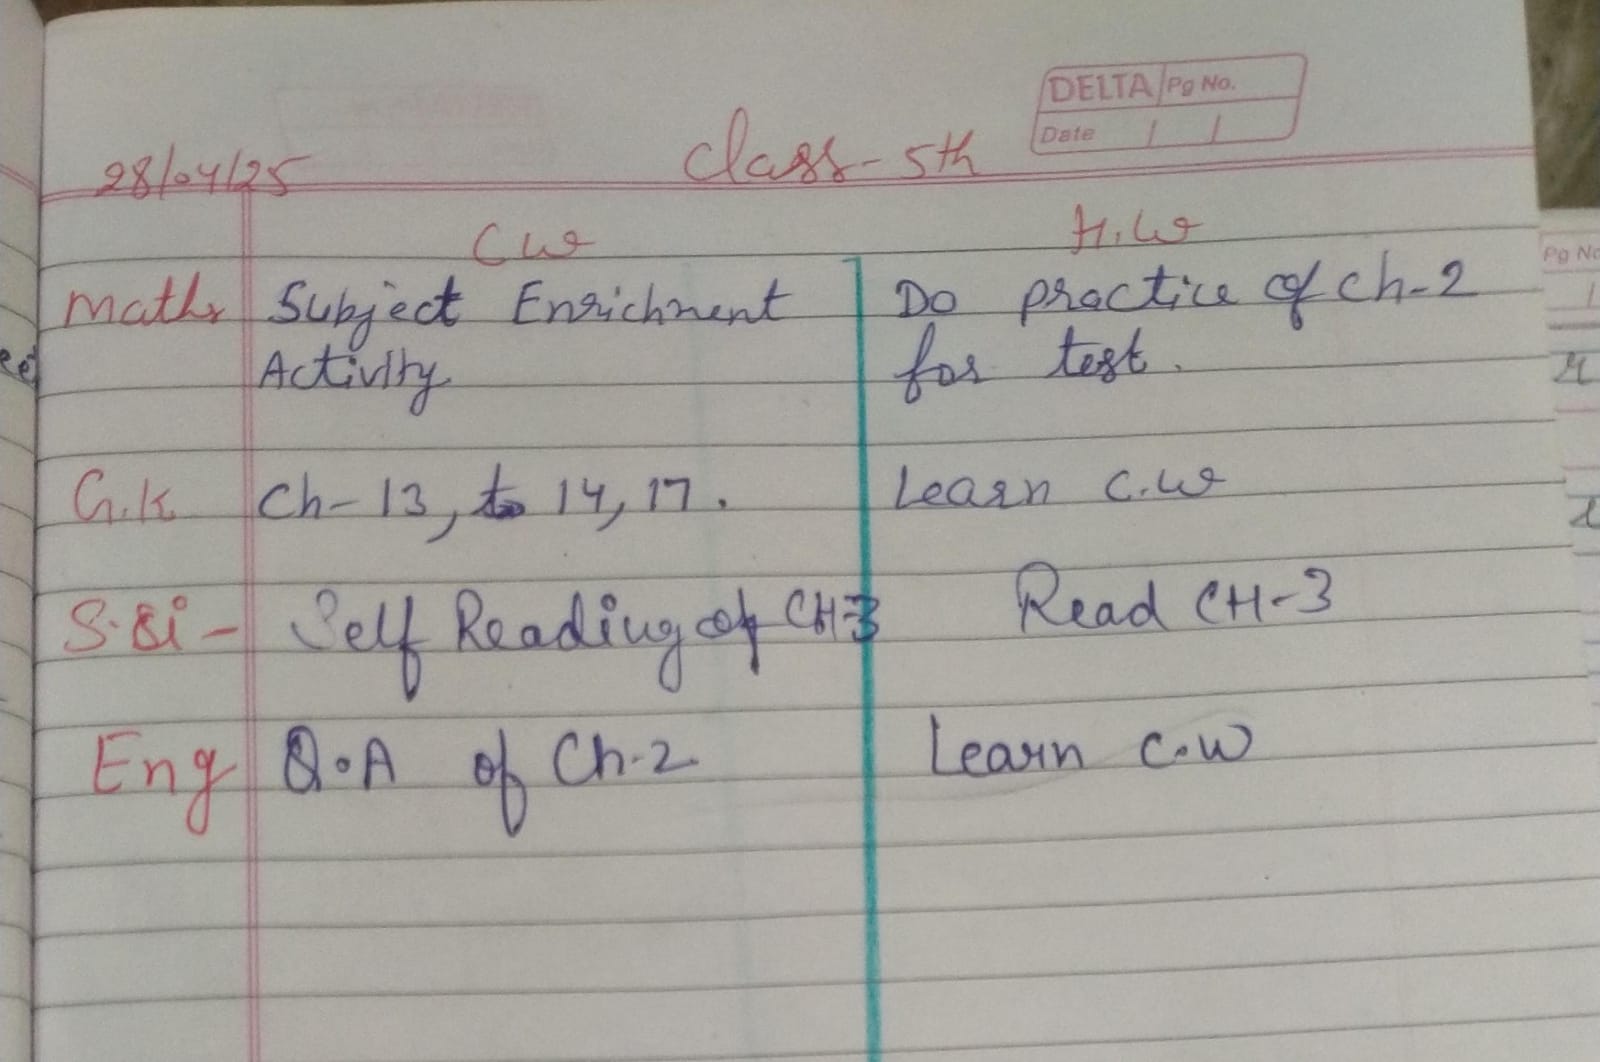 DELTA Pg No.
Date / /
28/04/25 Class-5th
CW H.W
Maths Subject Enrichment Do practice of ch-2
Activity for test.
G.K Ch-13, to 14, 17. Learn C.W
S.Si- Self Reading of CH-3 Read CH-3
Eng Q.A of Ch-2 Learn C.W
Pg No